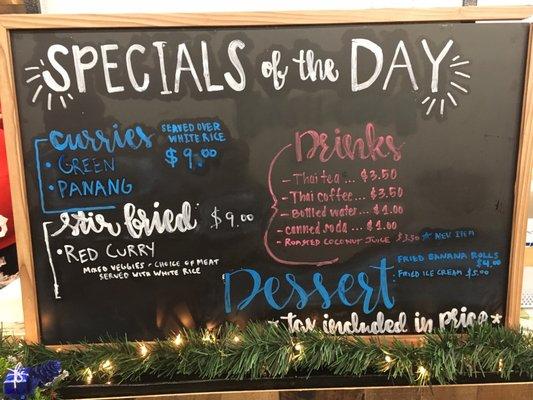 SPECIALS of the DAY
curries SERVED OVER WHITE RICE
$9.00
• GREEN
• PANANG
stir fried $9.00
• RED CURRY
MIXED VEGGIES - CHOICE OF MEAT
SERVED WITH WHITE RICE
Drinks
- Thai tea ... $3.50
- Thai coffee ... $3.50
- Bottled water ... $1.00
- canned soda ... $1.00
- ROASTED COCONUT JUICE $3.50 ★ NEW ITEM
Dessert
FRIED BANANA ROLLS
$4.00
FRIED ICE CREAM $5.00
*tax included in price*